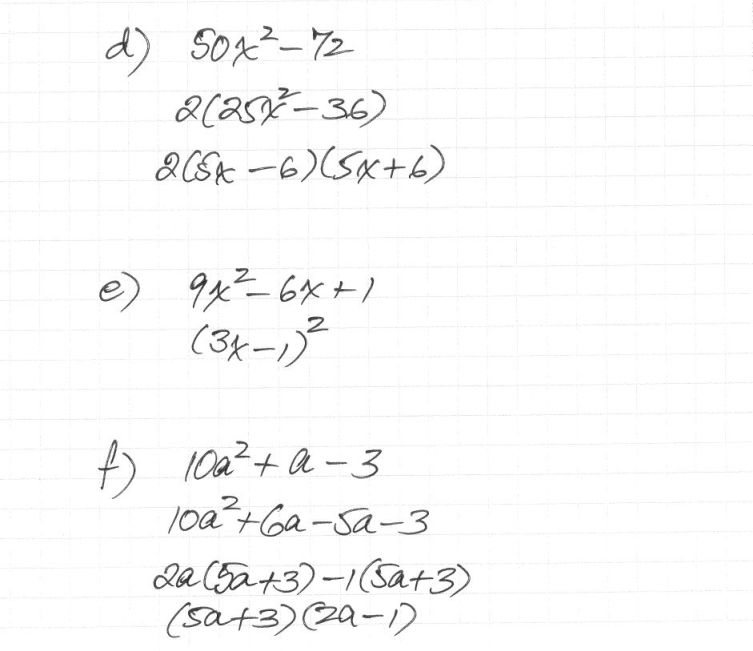 d) 50x²-72
2(25x²-36)
2(5x-6)(5x+6)
e) 9x²-6x+1
(3x-1)²
f) 10a²+a-3
10a²+6a-5a-3
2a(5a+3)-1(5a+3)
(5a+3)(2a-1)